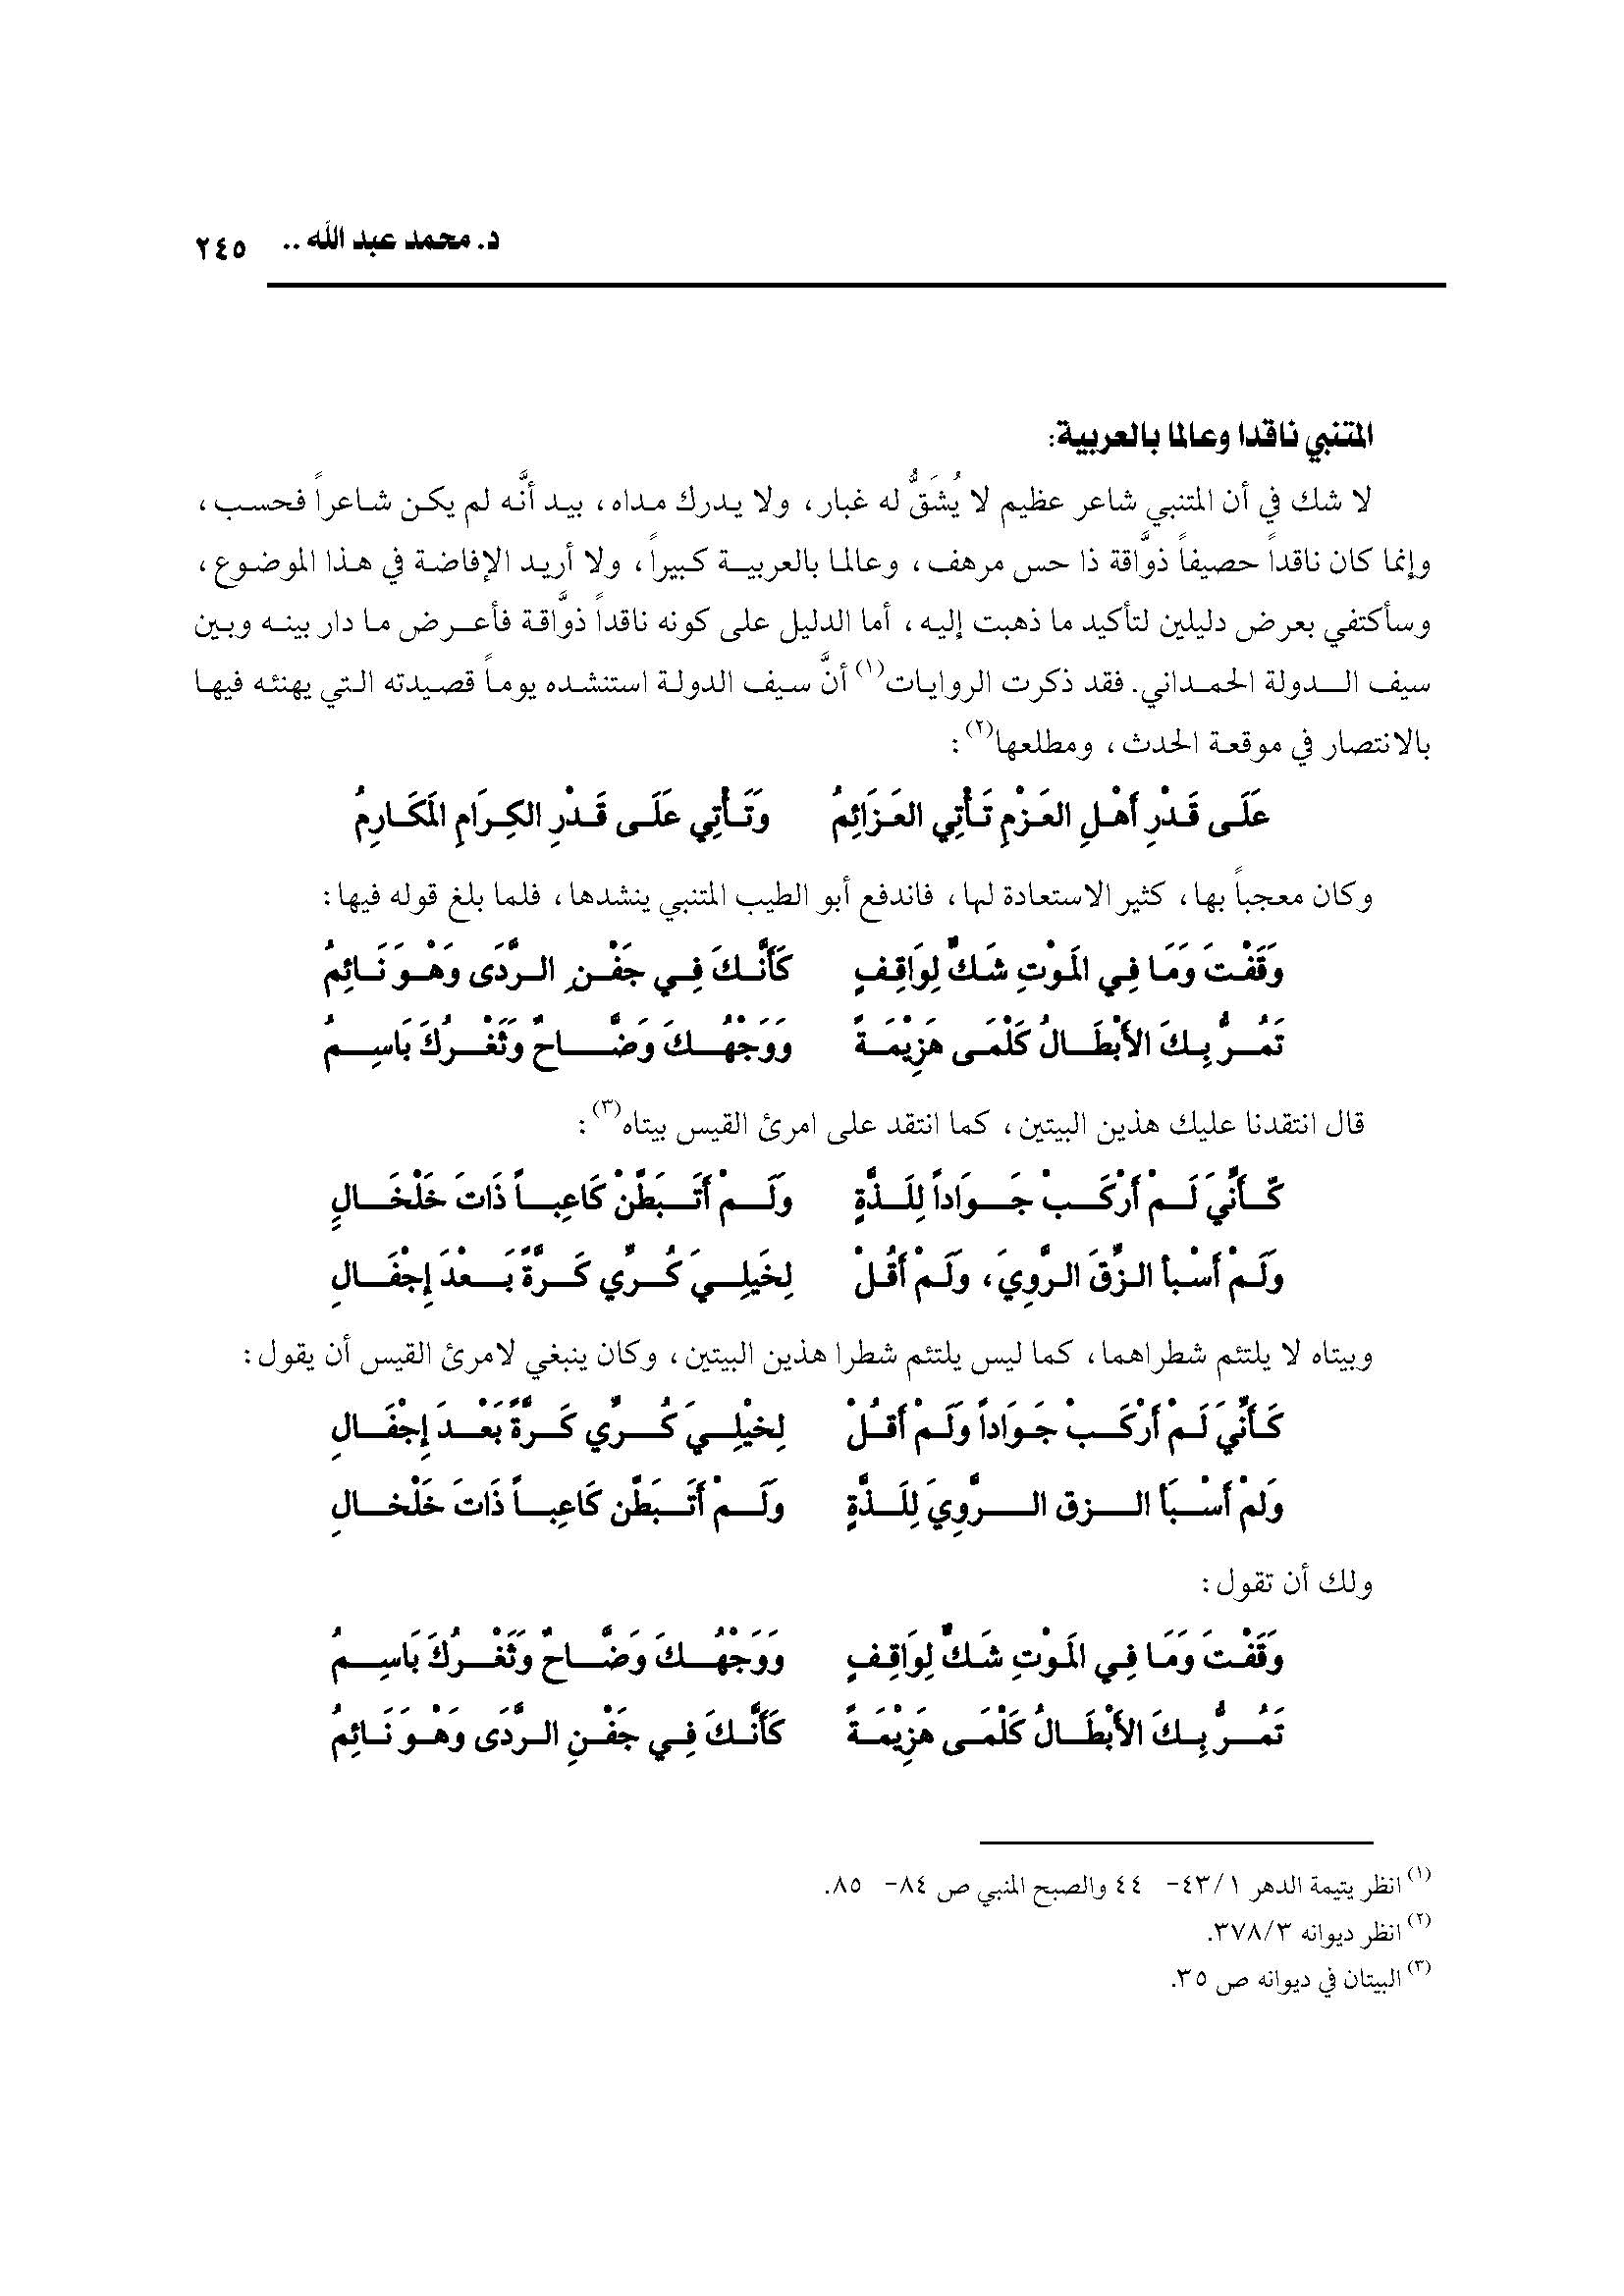 د. محمد عبد الله .. ٢٤٥
المتنبي ناقدا وعالما بالعربية:
لا شك في أن المتنبي شاعر عظيم لا يُشَقُّ له غبار، ولا يدرك مداه، بيد أنَّه لم يكن شاعراً فحسب،
وإنما كان ناقداً حصيفاً ذوَّاقة ذا حس مرهف، وعالما بالعربية كبيراً، ولا أريد الإفاضة في هذا الموضوع،
وسأكتفي بعرض دليلين لتأكيد ما ذهبت إليه، أما الدليل على كونه ناقداً ذوَّاقة فأعرض ما دار بينه وبين
سيف الدولة الحمداني. فقد ذكرت الروايات(١) أنَّ سيف الدولة استنشده يوماً قصيدته التي يهنئه فيها
بالانتصار في موقعة الحدث، ومطلعها(٢):
عَلَى قَدْرِ أَهْلِ العَزْمِ تَأْتِي العَزَائِمُ وَتَأْتِي عَلَى قَدْرِ الكِرَامِ المَكَارِمُ
وكان معجباً بها، كثير الاستعادة لها، فاندفع أبو الطيب المتنبي ينشدها، فلما بلغ قوله فيها:
وَقَفْتَ وَمَا فِي المَوْتِ شَكٌّ لِوَاقِفٍ كَأَنَّكَ فِي جَفْنِ الرَّدَى وَهْوَ نَائِمُ
تَمُرُّ بِكَ الأَبْطَالُ كَلْمَى هَزِيْمَةً وَوَجْهُكَ وَضَّاحٌ وَثَغْرُكَ بَاسِمُ
قال انتقدنا عليك هذين البيتين، كما انتقد على امرئ القيس بيتاه(٣):
كَأَنِّيَ لَمْ أَرْكَبْ جَوَاداً لِلَذَّةٍ وَلَمْ أَتَبَطَّنْ كَاعِباً ذَاتَ خَلْخَالِ
وَلَمْ أَسْبأ الزِّقَ الرَّوِيَ، وَلَمْ أَقُلْ لِخَيلِيَ كُرِّي كَرَّةً بَعْدَ إِجْفَالِ
وبيتاه لا يلتئم شطراهما، كما ليس يلتئم شطرا هذين البيتين، وكان ينبغي لامرئ القيس أن يقول:
كَأَنِّيَ لَمْ أَرْكَبْ جَوَاداً وَلَمْ أَقُلْ لِخيْلِيَ كُرِّي كَرَّةً بَعْدَ إِجْفَالِ
وَلمْ أَسْبَأ الزق الرَّوِيَ لِلَذَّةٍ وَلَمْ أَتَبَطَّن كَاعِباً ذَاتَ خَلْخالِ
ولك أن تقول:
وَقَفْتَ وَمَا فِي المَوْتِ شَكٌّ لِوَاقِفٍ وَوَجْهُكَ وَضَّاحٌ وَثَغْرُكَ بَاسِمُ
تَمُرُّ بِكَ الأَبْطَالُ كَلْمَى هَزِيْمَةً كَأَنَّكَ فِي جَفْنِ الرَّدَى وَهْوَ نَائِمُ
(١) انظر يتيمة الدهر ٤٣/١- ٤٤ والصبح المنبي ص ٨٤- ٨٥.
(٢) انظر ديوانه ٣٧٨/٣.
(٣) البيتان في ديوانه ص ٣٥.